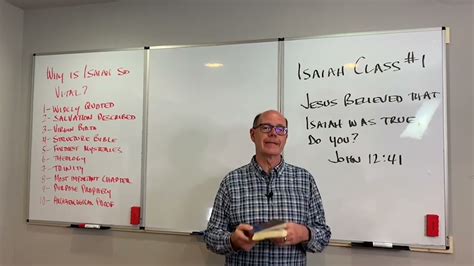 WHY IS ISAIAH SO
VITAL?
1- WIDELY QUOTED
2- SALVATION DESCRIBED
3- VIRGIN BIRTH
4- STRUCTURE BIBLE
5- FURTHEST MYSTERIES
6- THEOLOGY
7- TRINITY
8- MOST IMPORTANT CHAPTER
9- PURPOSE PROPHECY
10- ARCHAEOLOGICAL PROOF
ISAIAH CLASS #1
JESUS BELIEVED THAT
ISAIAH WAS TRUE.
DO YOU?
JOHN 12:41